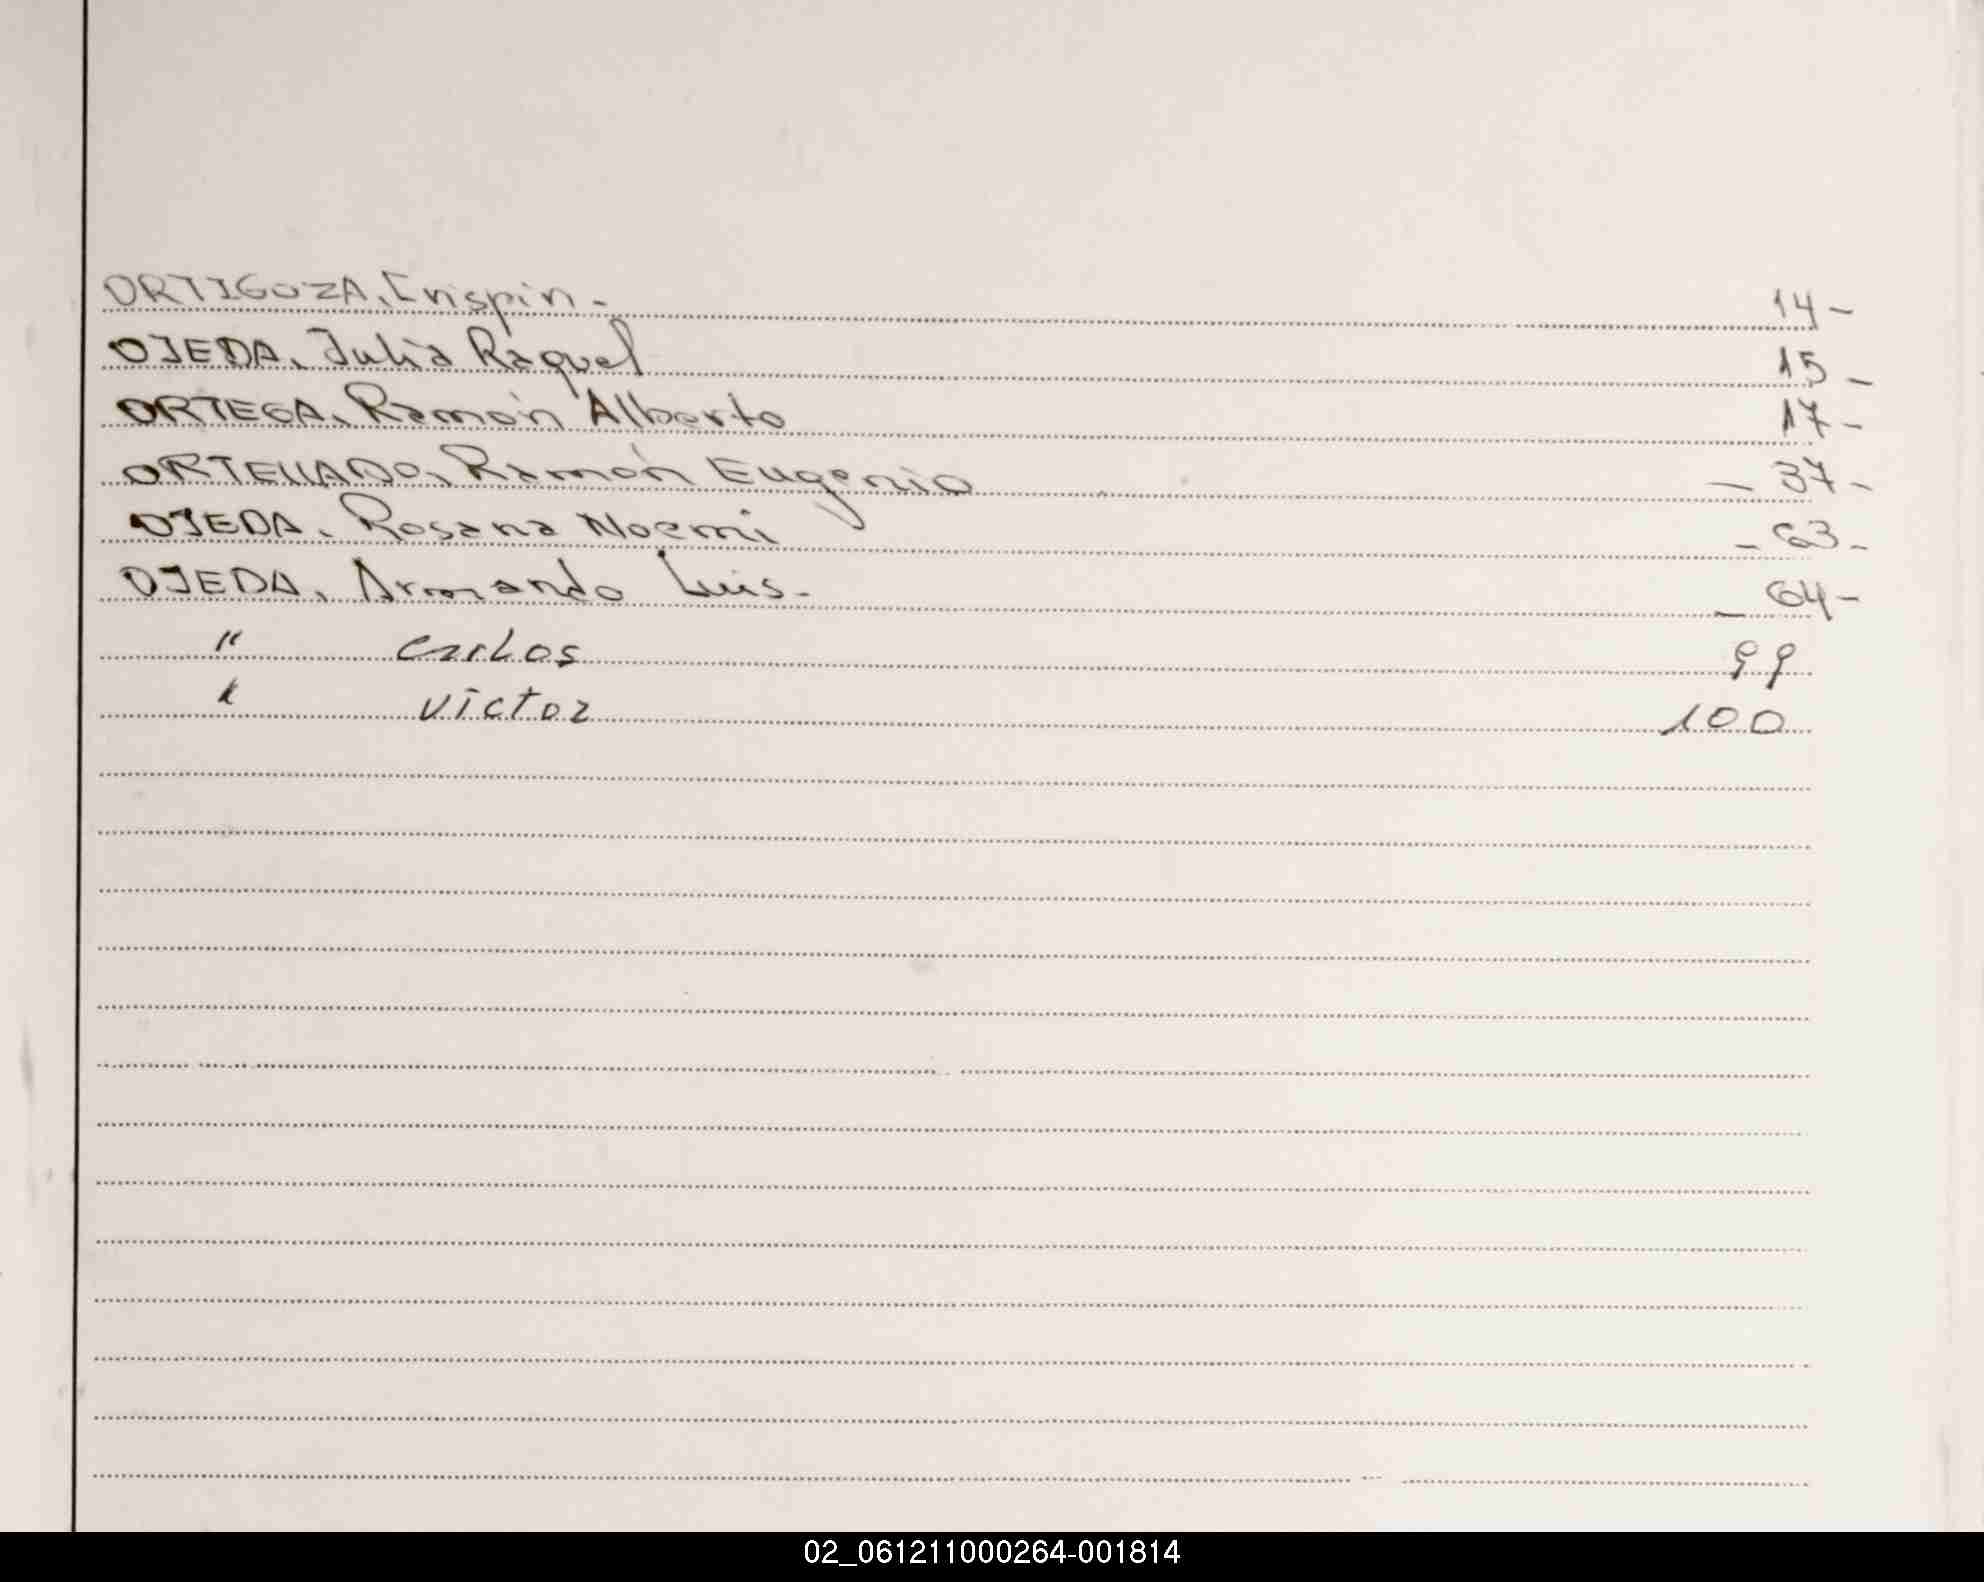 ORTIGOZA, Crispin - 14 -
OJEDA, Julia Raquel 15 -
ORTEGA, Ramón Alberto 17 -
ORTELLADO, Ramón Eugenio - 37 -
OJEDA, Rosana Noemi - 63 -
OJEDA, Armando Luis - - 64 -
" Carlos 99
" Victor 100
02_061211000264-001814